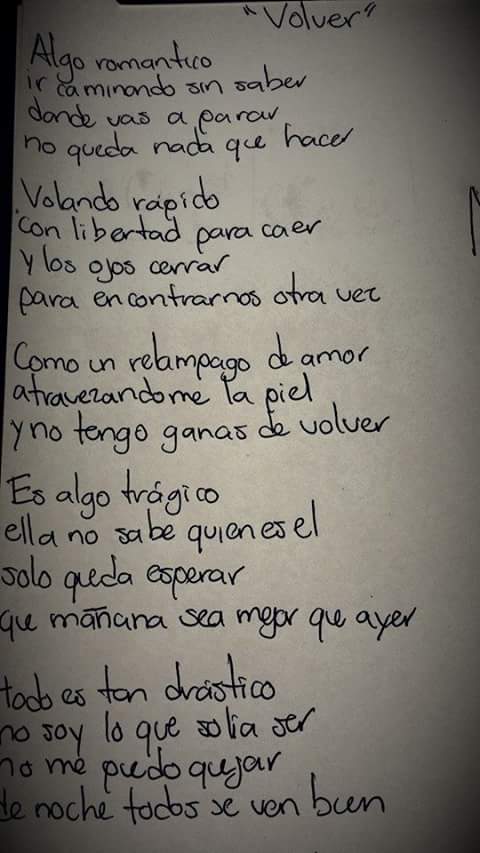 "Volver"
Algo romantico
ir caminando sin saber
donde vas a parar
no queda nada que hacer
Volando rápido
con libertad para caer
y los ojos cerrar
para encontrarnos otra vez
Como un relampago de amor
atravezandome la piel
y no tengo ganas de volver
Es algo trágico
ella no sabe quien es el
solo queda esperar
que mañana sea mejor que ayer
todo es tan drástico
no soy lo que solia ser
no me puedo quejar
de noche todos se ven bien